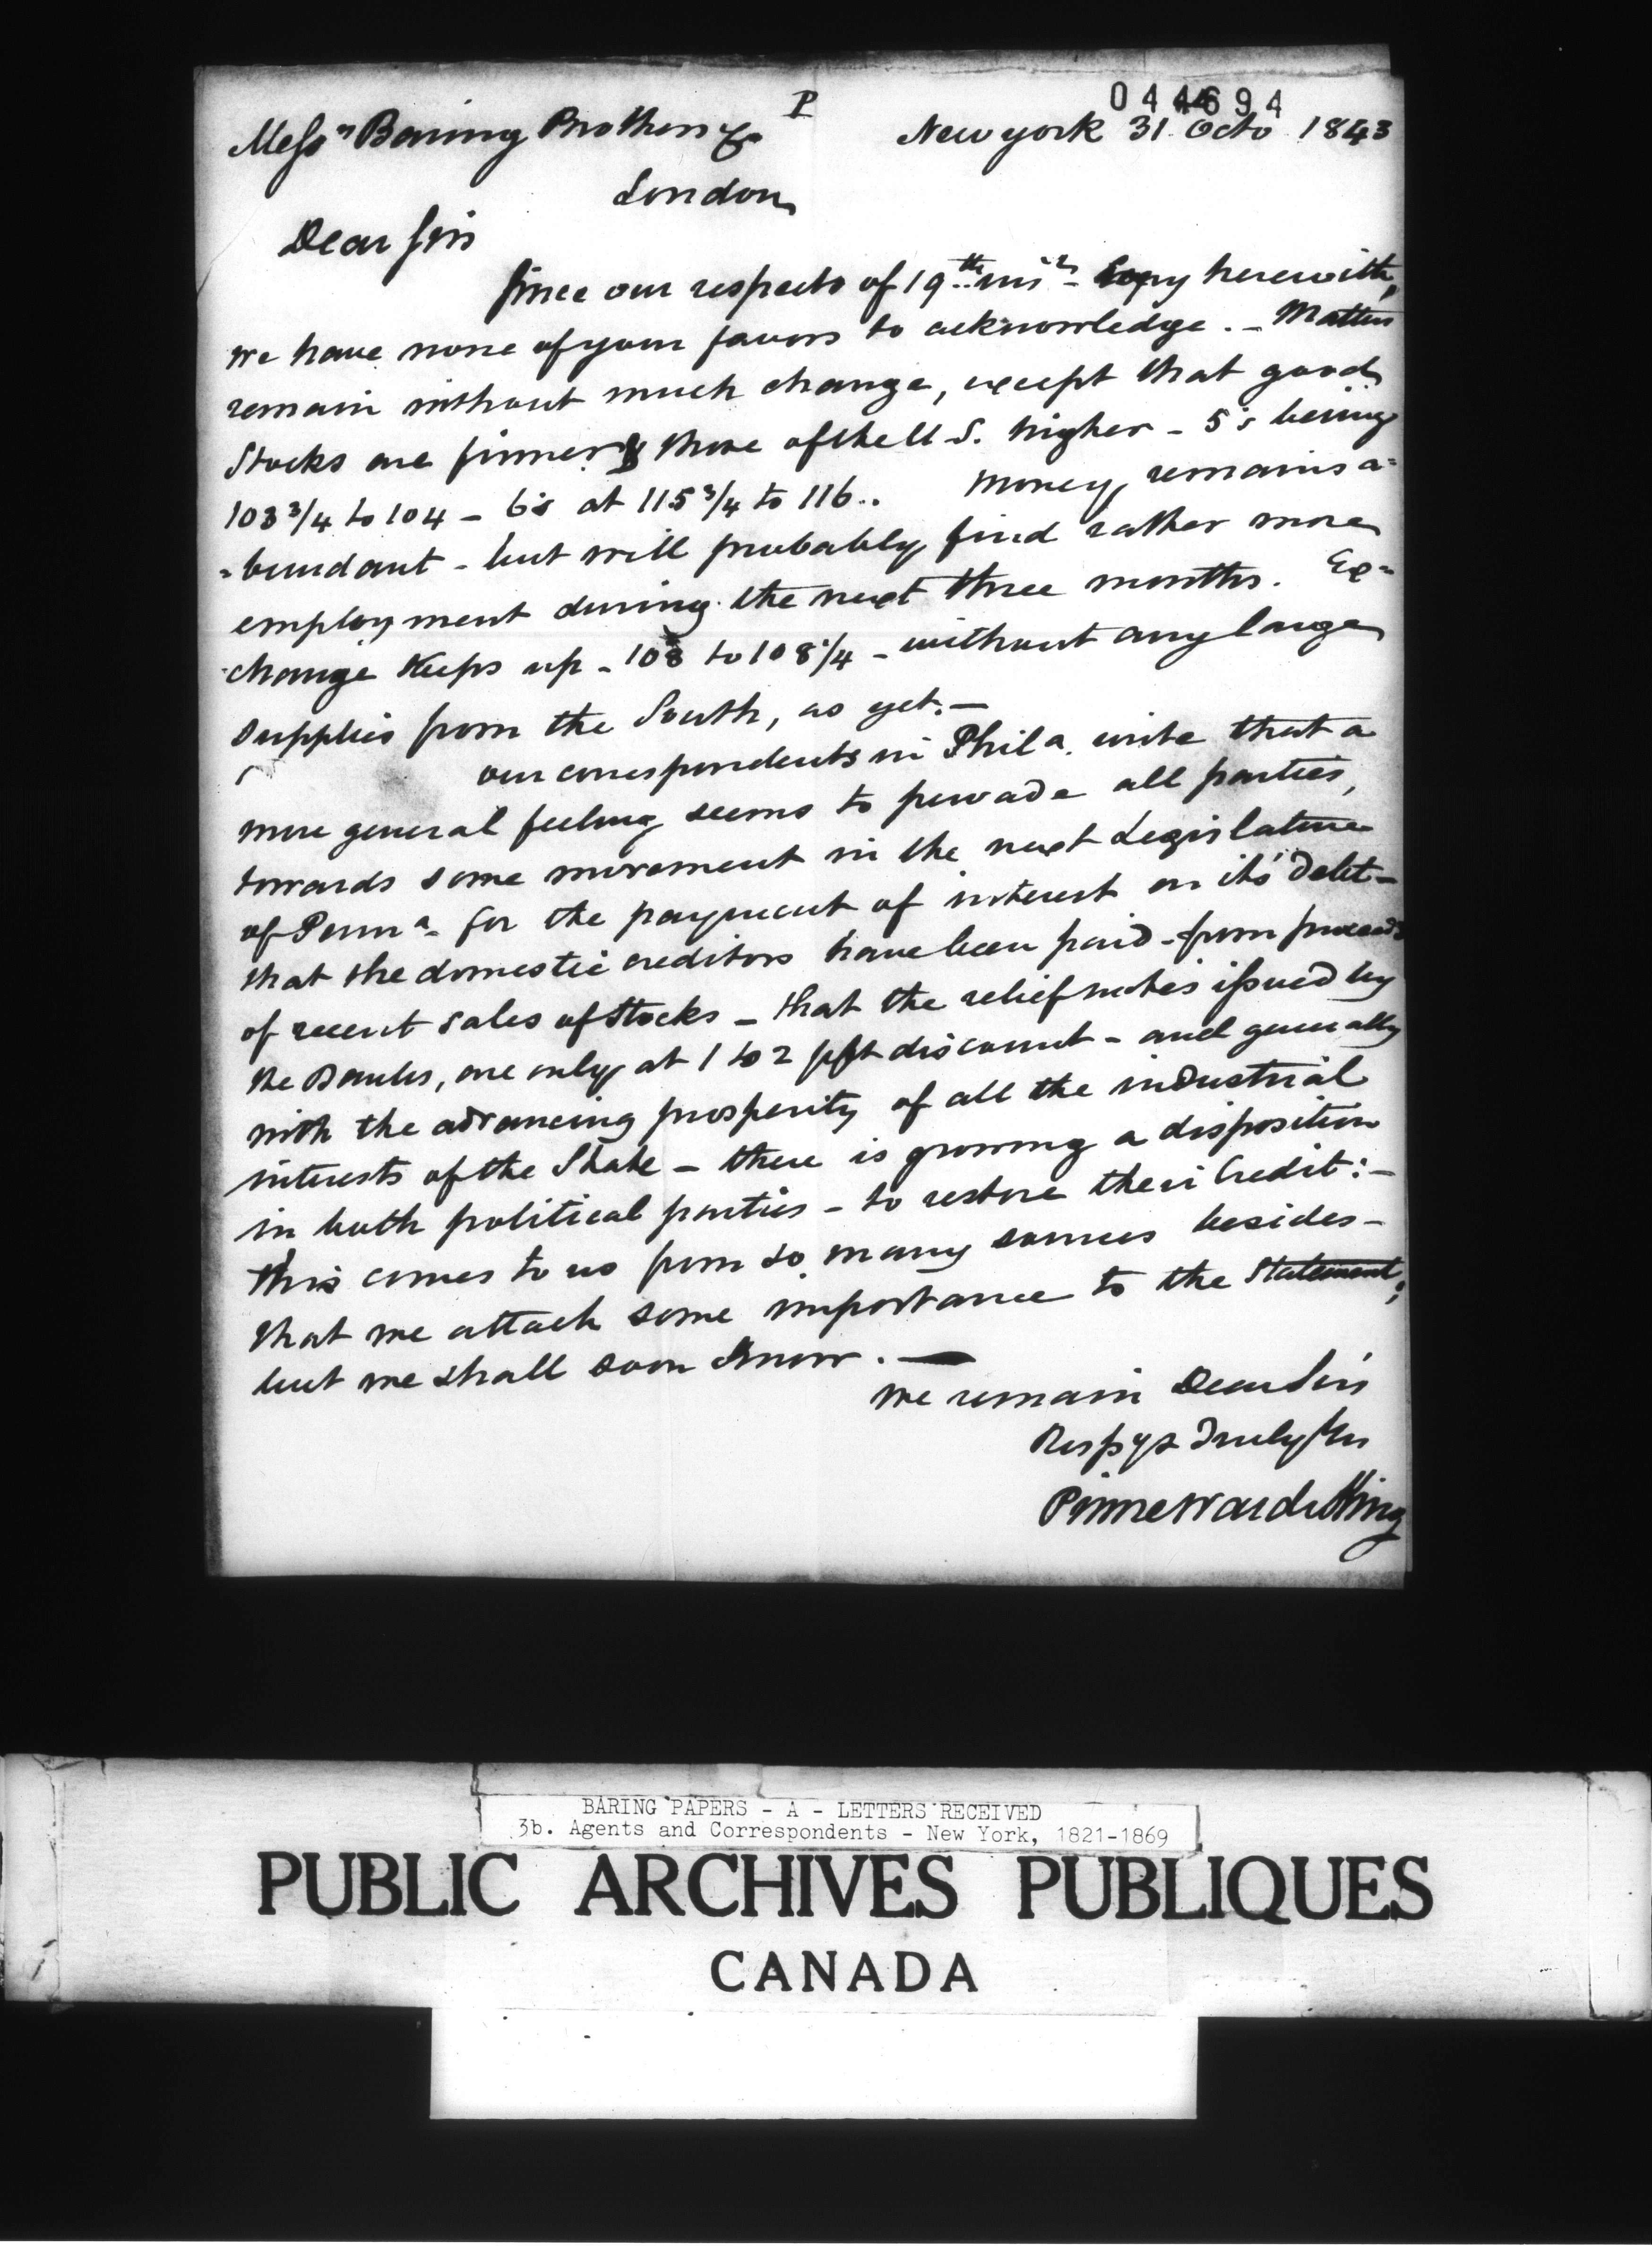 P
044694
Messrs Baring Brothers & Co
New york 31 Octo 1843
London
Dear Sirs
Since our respects of 19th inst - Copy herewith,
we have none of your favors to acknowledge. - Matters
remain without much change, except that good
Stocks are firmer & those of the U.S. higher - 5's being
103 3/4 to 104 - 6's at 115 3/4 to 116.. Money remains a=
=bundant - but will probably find rather more
employment during the next three months. Ex=
change keeps up - 108 to 108 1/4 - without any large
supplies from the South, as yet. -
our correspondents in Phila. write that a
more general feeling seems to pervade all parties,
towards some movement in the next Legislature
of Penna. for the payment of interest on its' debt -
that the domestic creditors have been paid - from proceeds
of recent sales of stocks - that the relief notes issued by
the Banks, are only at 1 to 2 pct discount - and generally
with the advancing prosperity of all the industrial
interests of the State - there is growing a disposition
in both political parties - to restore their Credit: -
this comes to us from so many sources besides -
that we attach some importance to the Statement;
but we shall soon know. -
we remain Dear Sirs
Respy & Truly Yrs
Prime Ward & King
BARING PAPERS - A - LETTERS RECEIVED
3b. Agents and Correspondents - New York, 1821-1869
PUBLIC ARCHIVES PUBLIQUES
CANADA